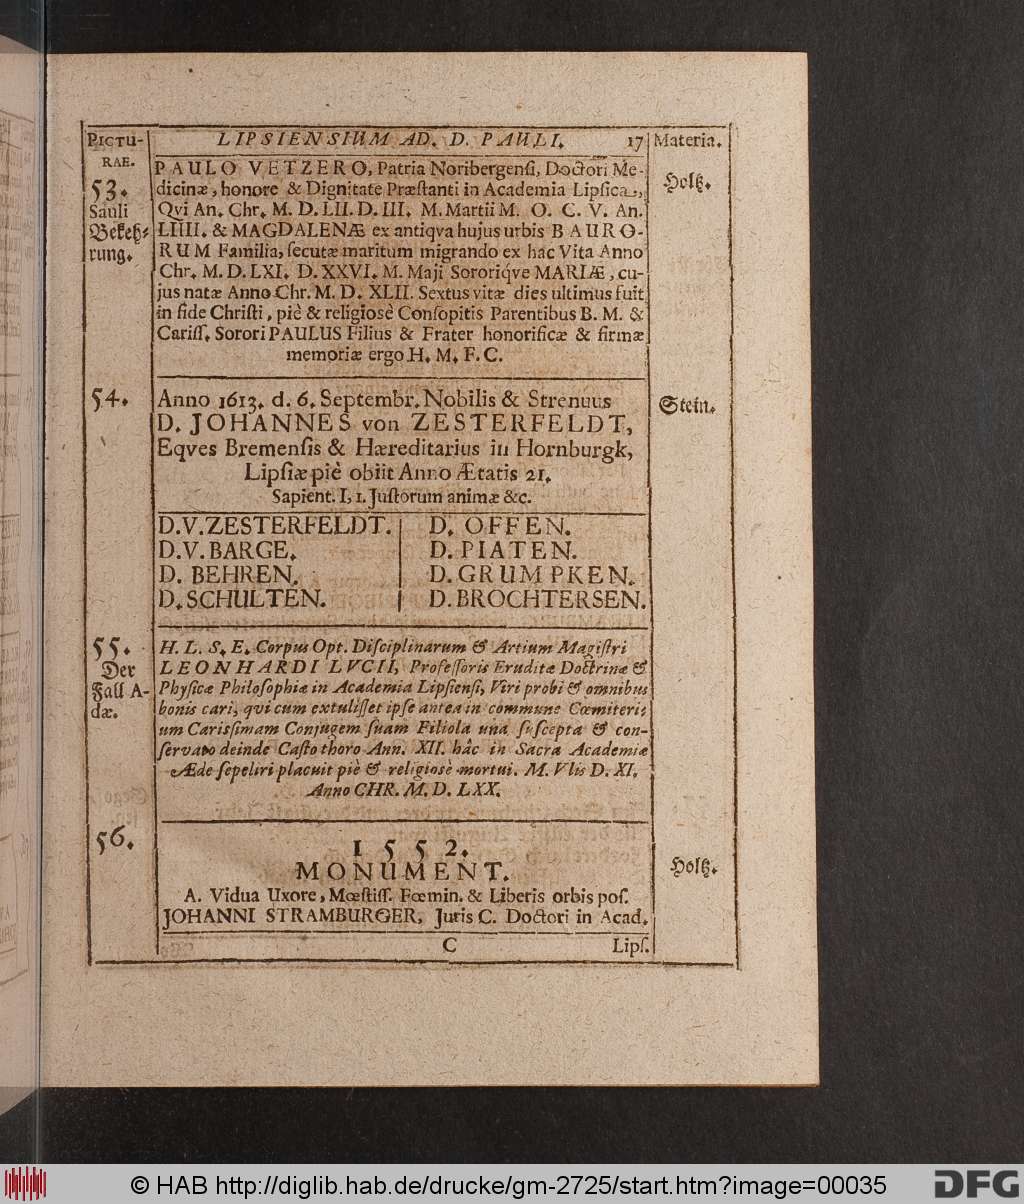 PICTU- LIPSIENSIUM AD. D. PAULI. 17 Materia.
RAE.
53. PAULO VETZERO, Patria Noribergensi, Doctori Me- Holtz.
Sauli dicinæ, honore & Dignitate Præstanti in Academia Lipsica.,
Bekeh- Qvi An. Chr. M. D. LII. D. III. M. Martii M. O. C. V. An.
rung. LIIII. & MAGDALENÆ ex antiqva hujus urbis BAURO-
RUM Familia, secutæ maritum migrando ex hac Vita Anno
Chr. M. D. LXI. D. XXVI. M. Maji Sororiq́ve MARIÆ, cu-
jus natæ Anno Chr. M. D. XLII. Sextus vitæ dies ultimus fuit
in fide Christi, piè & religiosè Consopitis Parentibus B. M. &
Cariss. Sorori PAULUS Filius & Frater honorificæ & firmæ
memoriæ ergo H. M. F. C.
54. Anno 1613. d. 6. Septembr. Nobilis & Strenuus Stein.
D. JOHANNES von ZESTERFELDT,
Eqves Bremensis & Hæreditarius in Hornburgk,
Lipsiæ piè obiit Anno Ætatis 21.
Sapient. I, 1. Justorum animæ &c.
D.V. ZESTERFELDT. D. OFFEN.
D.V. BARGE. D. PIATEN.
D. BEHREN. D. GRUMPKEN.
D. SCHULTEN. D. BROCHTERSEN.
55. H. L. S. E. Corpus Opt. Disciplinarum & Artium Magistri
Der LEONHARDI LVCII, Professoris Eruditæ Doctrinæ &
Fall A- Physicæ Philosophiæ in Academia Lipsiensi, Viri probi & omnibus
dæ. bonis cari, qui cum extulisset ipse antea in commune Cœmiteri-
um Carissimam Conjugem suam Filiola una suscepta & con-
servato deinde Casto thoro Ann. XII. hâc in Sacra Academiæ
Æde sepeliri placuit piè & religiosè mortui. M. Vlis D. XI.
Anno CHR. M. D. LXX.
56. 1552.
MONUMENT. Holtz.
A. Vidua Uxore, Mœstiss. Fœmin. & Liberis orbis pos.
JOHANNI STRAMBURGER, Juris C. Doctori in Acad.
C Lips.
© HAB http://diglib.hab.de/drucke/gm-2725/start.htm?image=00035
DFG